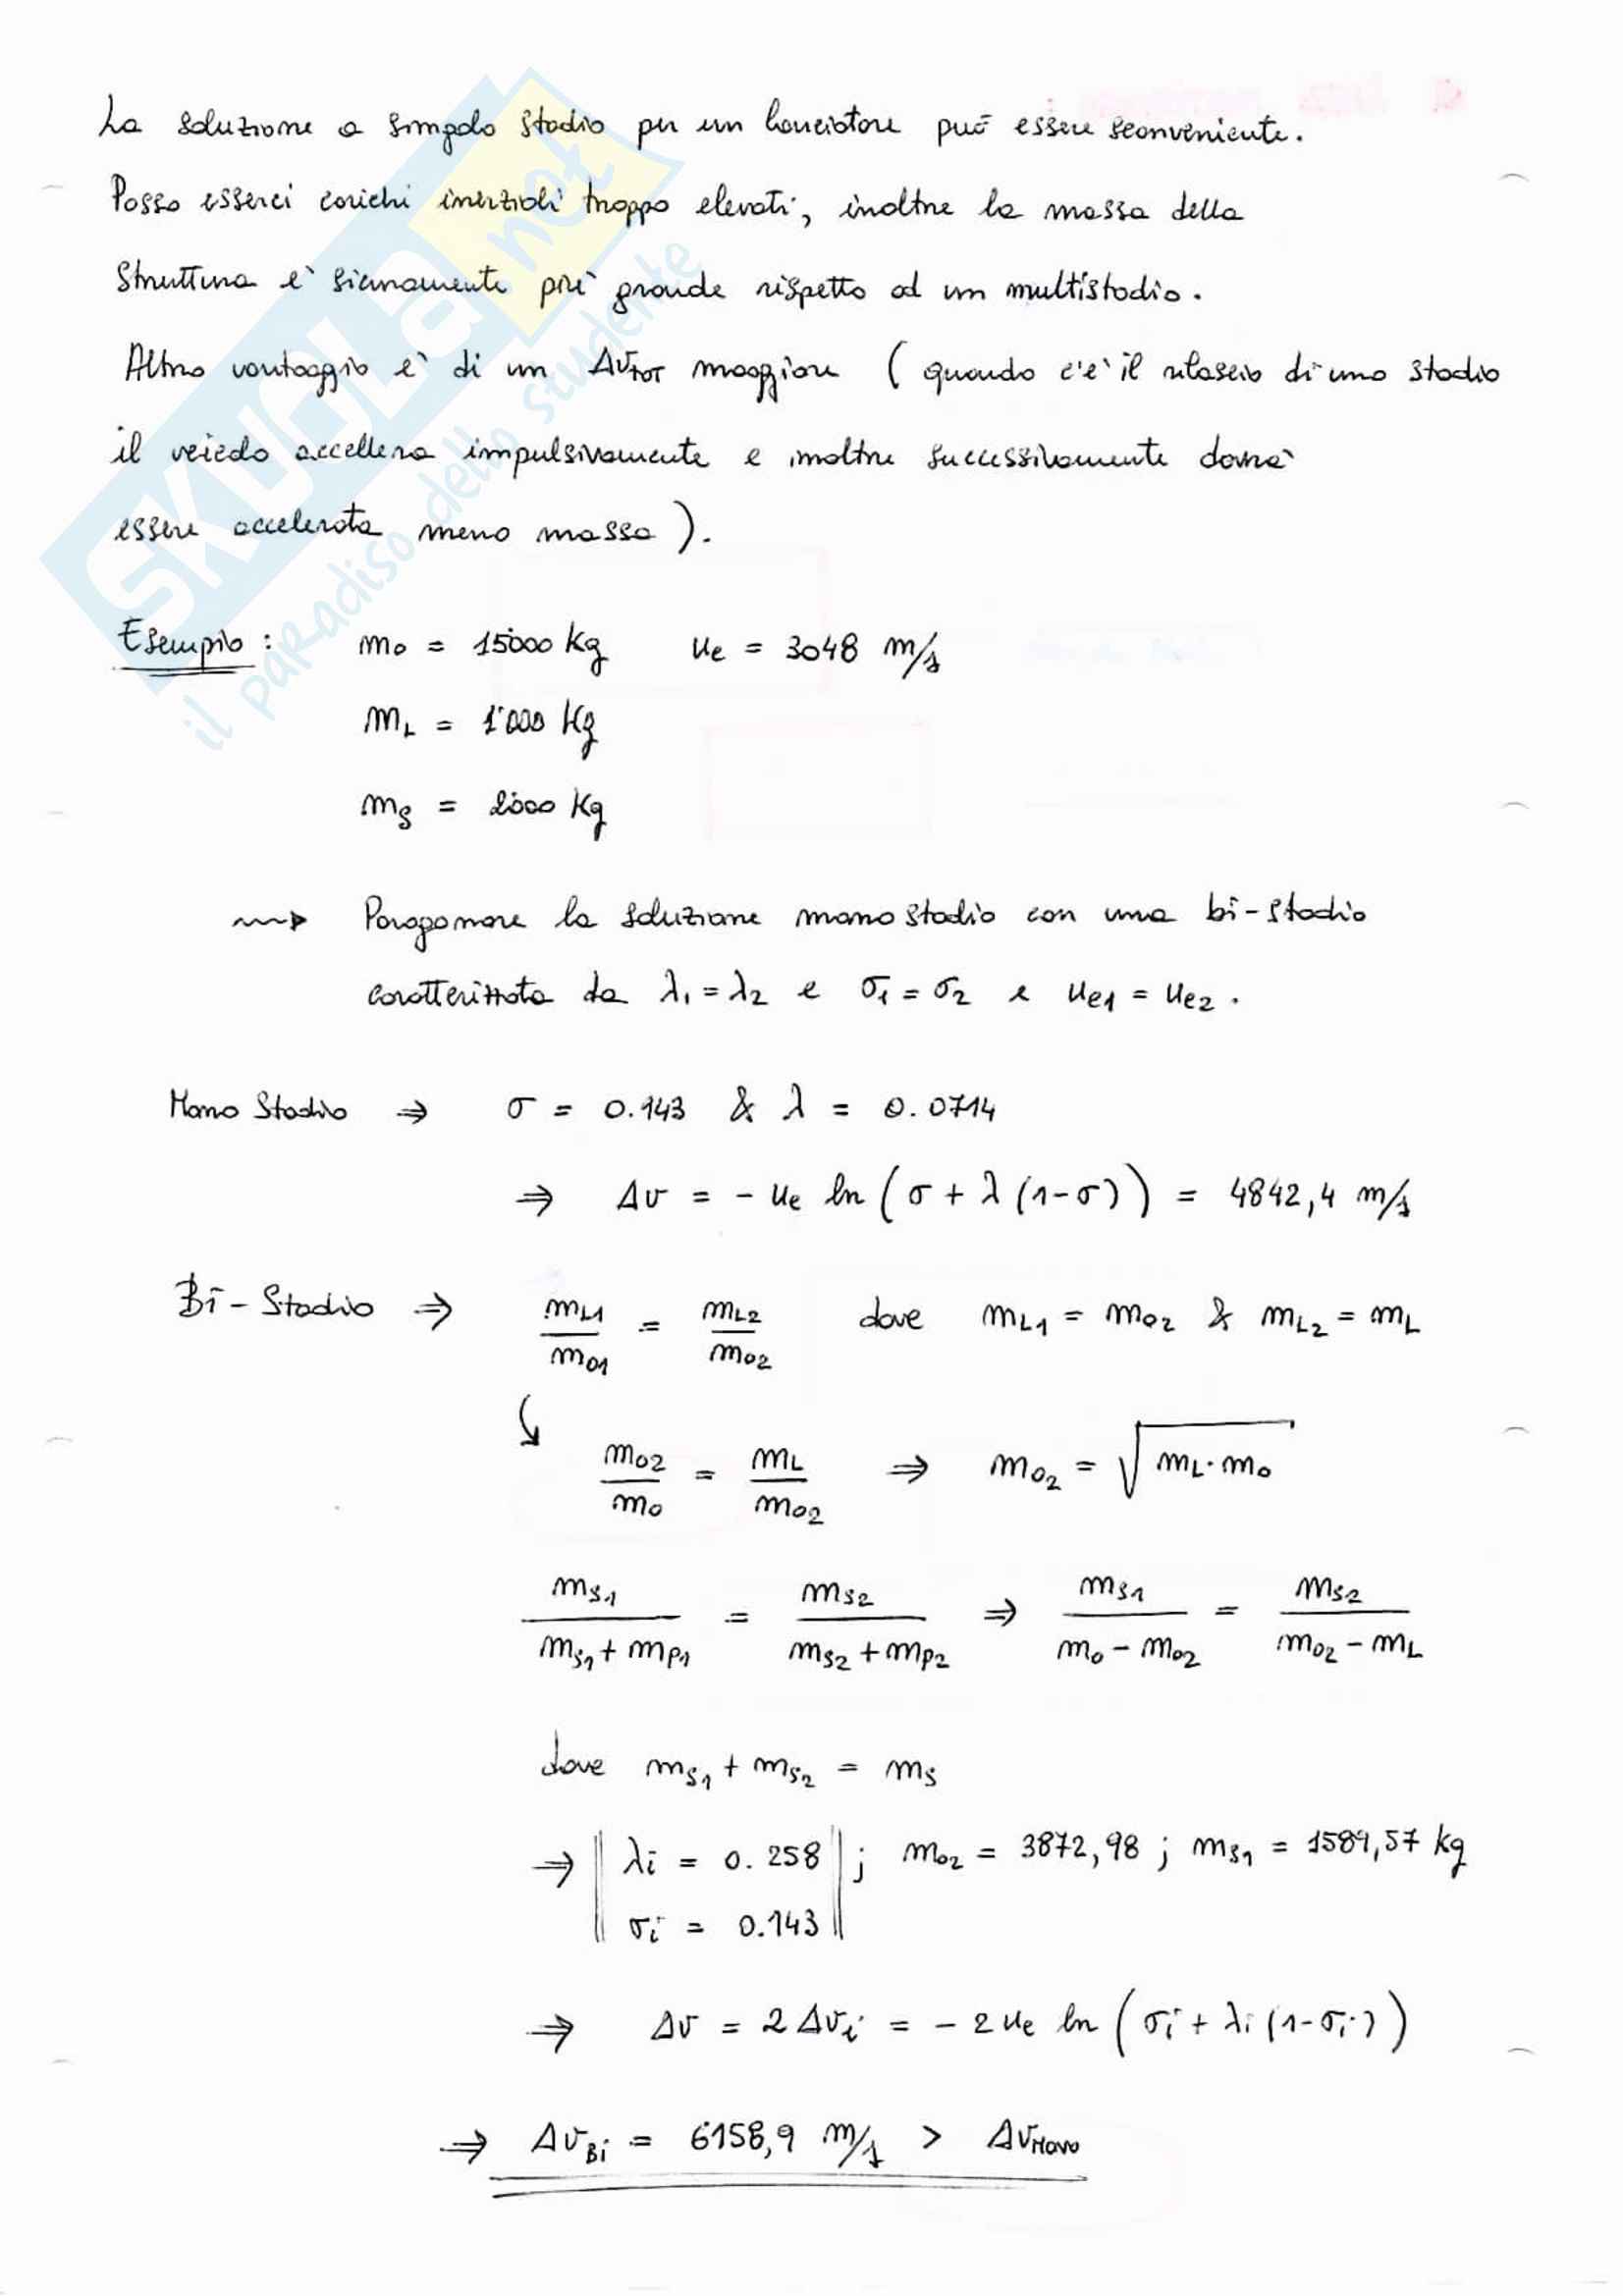 La soluzione a singolo stadio per un lanciatore può essere sconveniente.
Posso esserci carichi inerziali troppo elevati, inoltre la massa della
struttura è sicuramente più grande rispetto ad un multistadio.
Altro vantaggio è di un ΔvTOT maggiore (quando c'è il rilascio di uno stadio
il veicolo accellera impulsivamente e inoltre successivamente dovrà
essere accelerata meno massa).
Esempio: m₀ = 15'000 kg uₑ = 3048 m/s
m_L = 1'000 kg
m_S = 2'000 kg
⇝ Paragonare la soluzione mono stadio con una bi-stadio
caratterizzata da λ₁ = λ₂ e σ₁ = σ₂ e uₑ₁ = uₑ₂.
Mono Stadio ⇒ σ = 0.143 & λ = 0.0714
⇒ Δv = - uₑ ln (σ + λ (1-σ)) = 4842,4 m/s
Bi-Stadio ⇒ m_L1/m_01 = m_L2/m_02 dove m_L1 = m_02 & m_L2 = m_L
↳ m_02/m_0 = m_L/m_02 ⇒ m_02 = √(m_L · m_0)
m_S1/(m_S1 + m_P1) = m_S2/(m_S2 + m_P2) ⇒ m_S1/(m_0 - m_02) = m_S2/(m_02 - m_L)
dove m_S1 + m_S2 = m_S
⇒ ‖ λi = 0.258 ‖ ; m_02 = 3872,98 ; m_S1 = 1589,57 kg
σi = 0.143
⇒ Δv = 2 Δvi = - 2 uₑ ln (σi + λi (1-σi))
⇒ Δv_Bi = 6158,9 m/s > Δv_Mono
SKUOLA.net
il paradiso dello studente